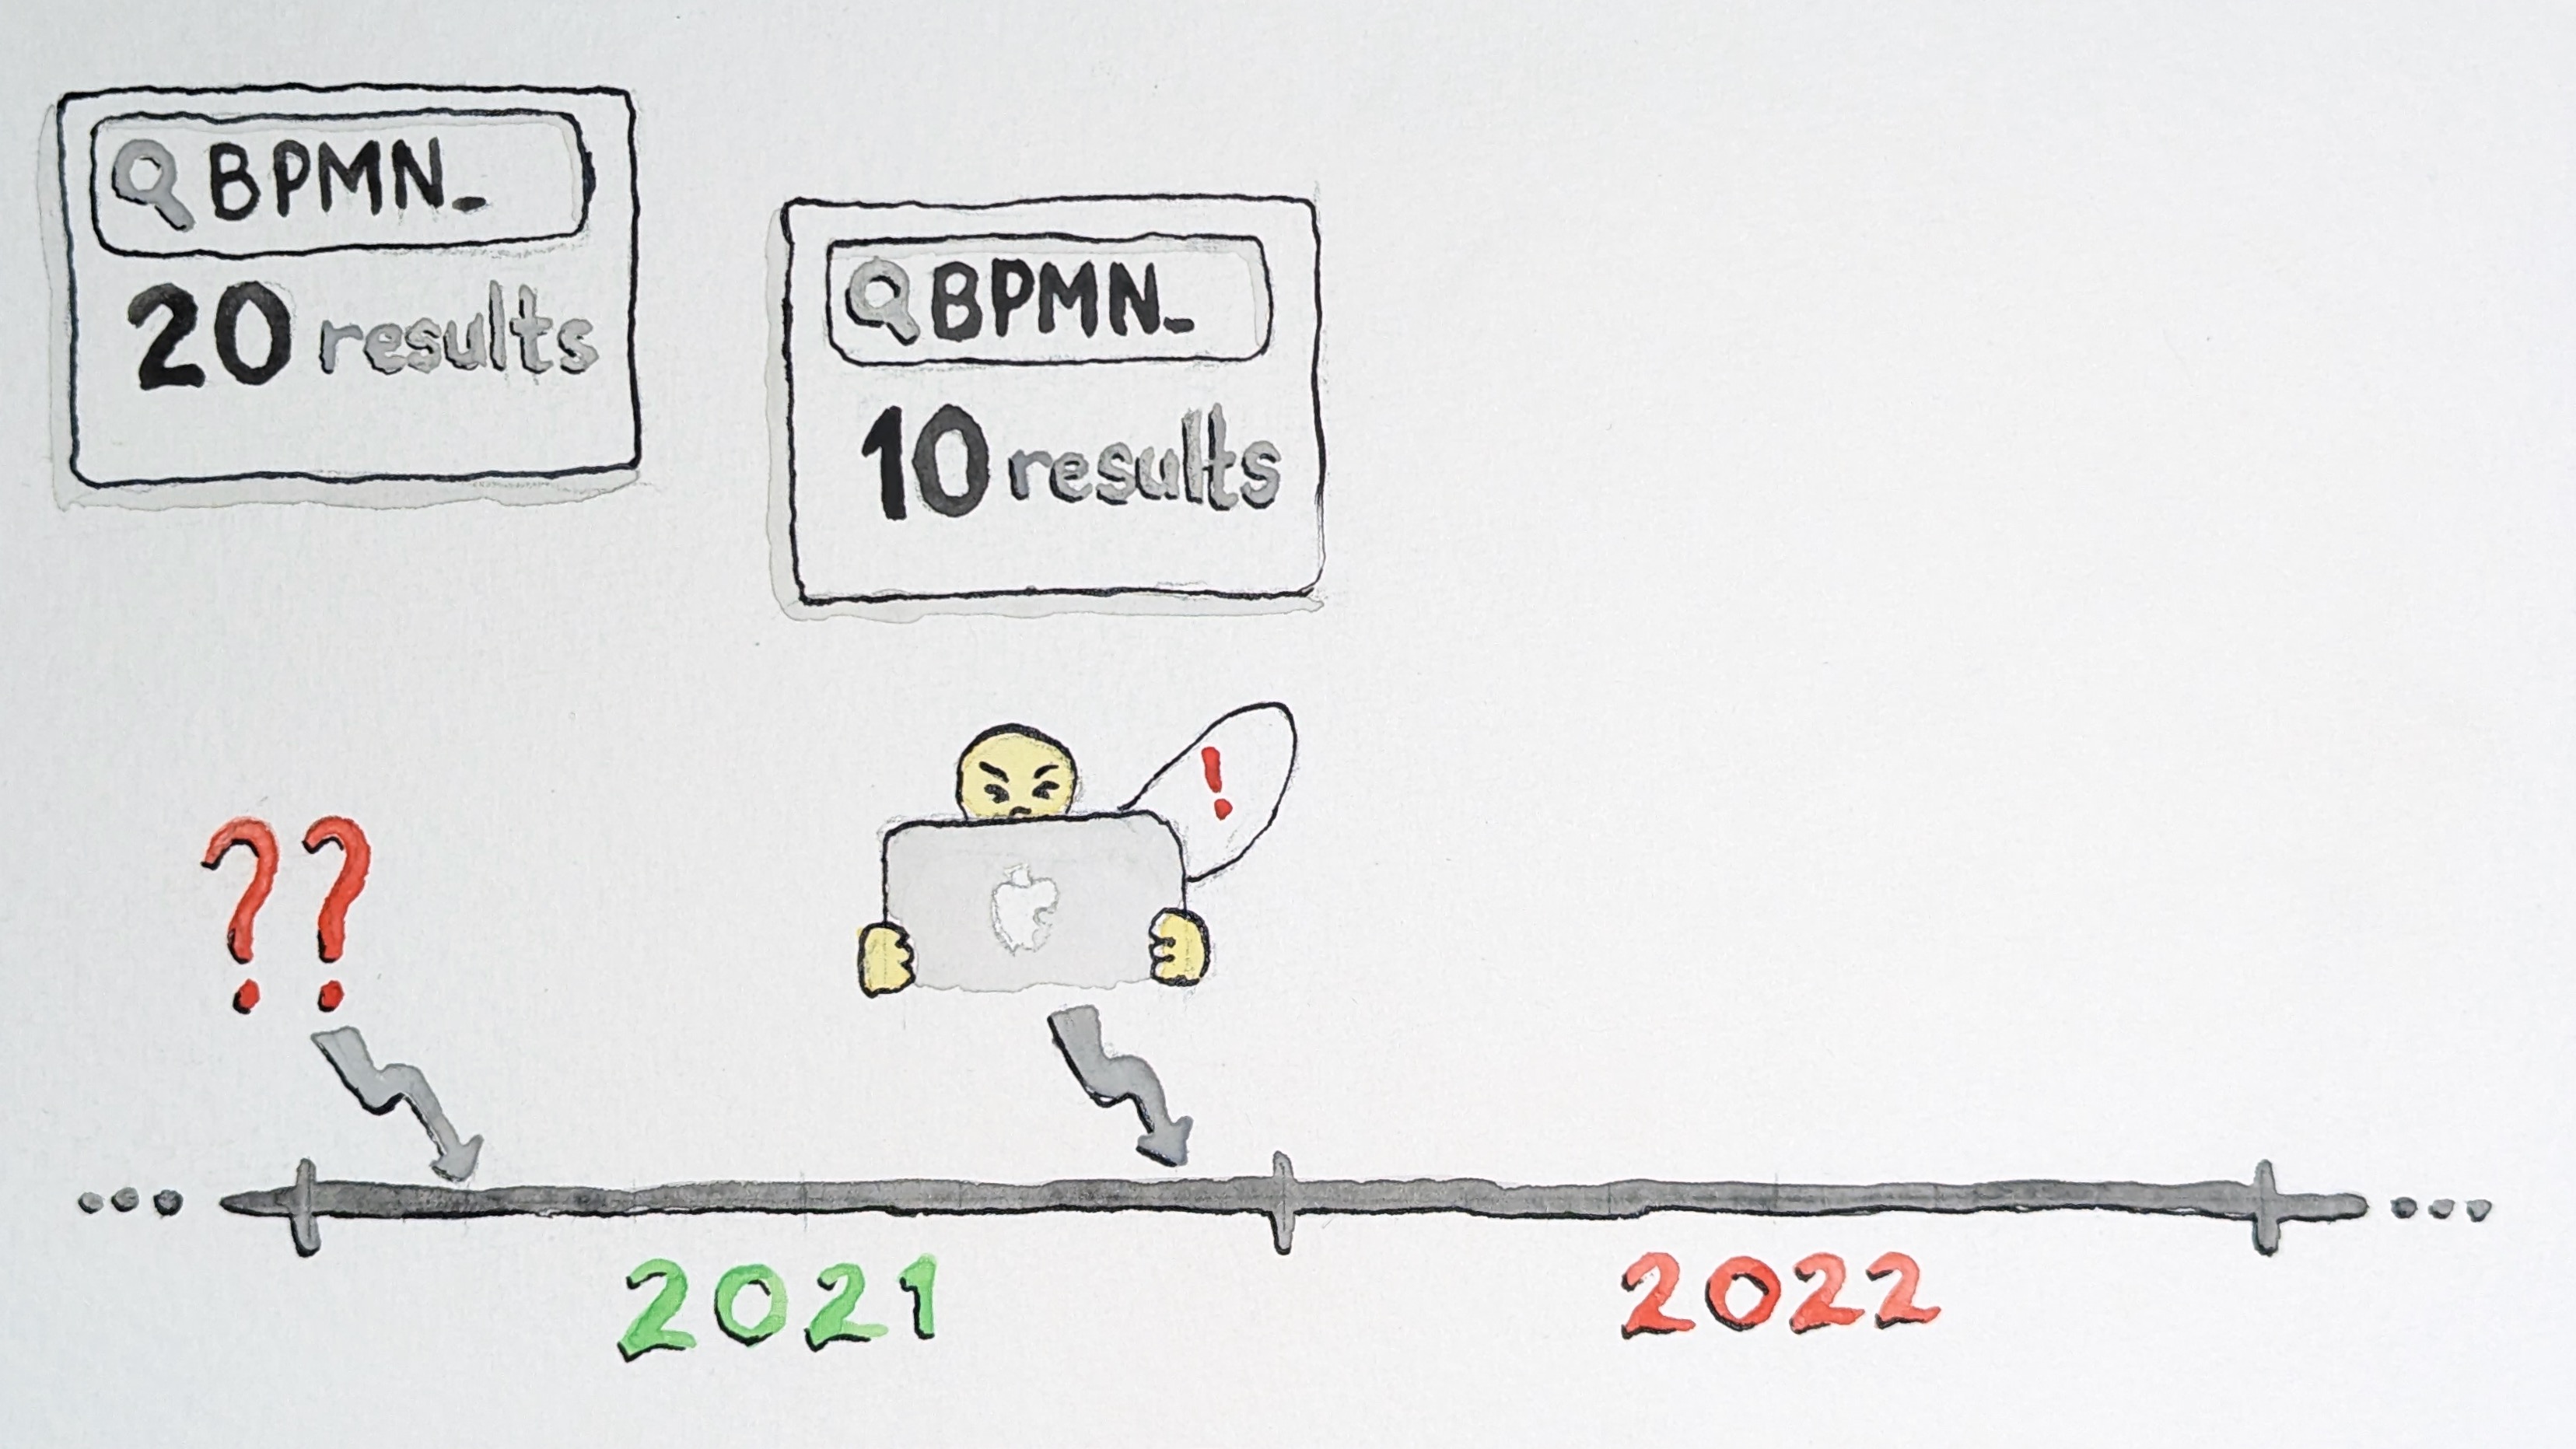 BPMN_
20 results
BPMN_
10 results
!
??
2021
2022